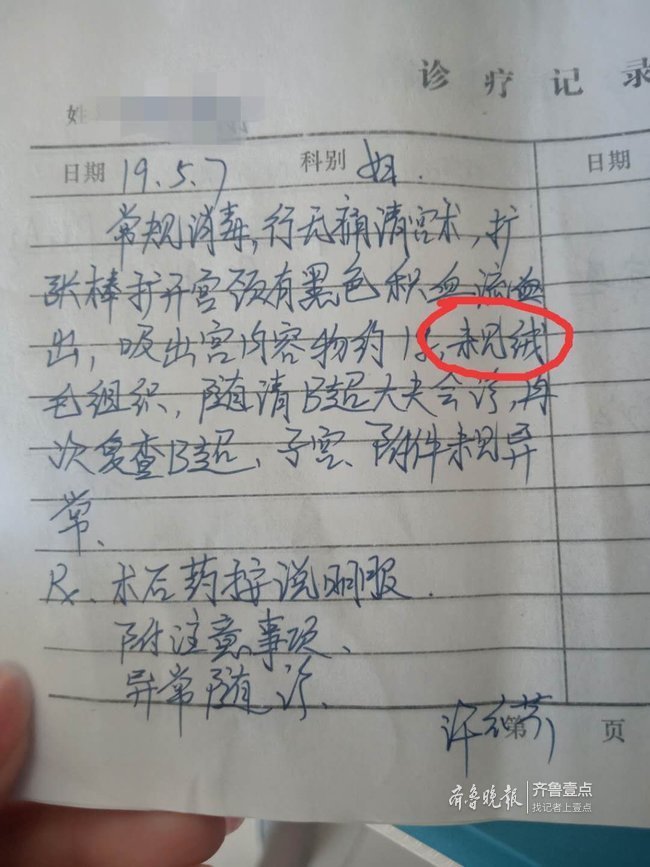 诊疗记录
姓
日期 19.5.7 科别 妇. 日期
常规消毒,行无痛清宫术,扩
张棒扩开宫颈有黑色积血流血
出,吸出宫内容物约1g,未见绒
毛组织,随请B超大夫会诊,再
次复查B超、子宫、附件未见异
常、
Rx、术后药按说明服.
附注意事项、
异常随诊、
许 芬
第 页
齐鲁晚报 齐鲁壹点
找记者上壹点